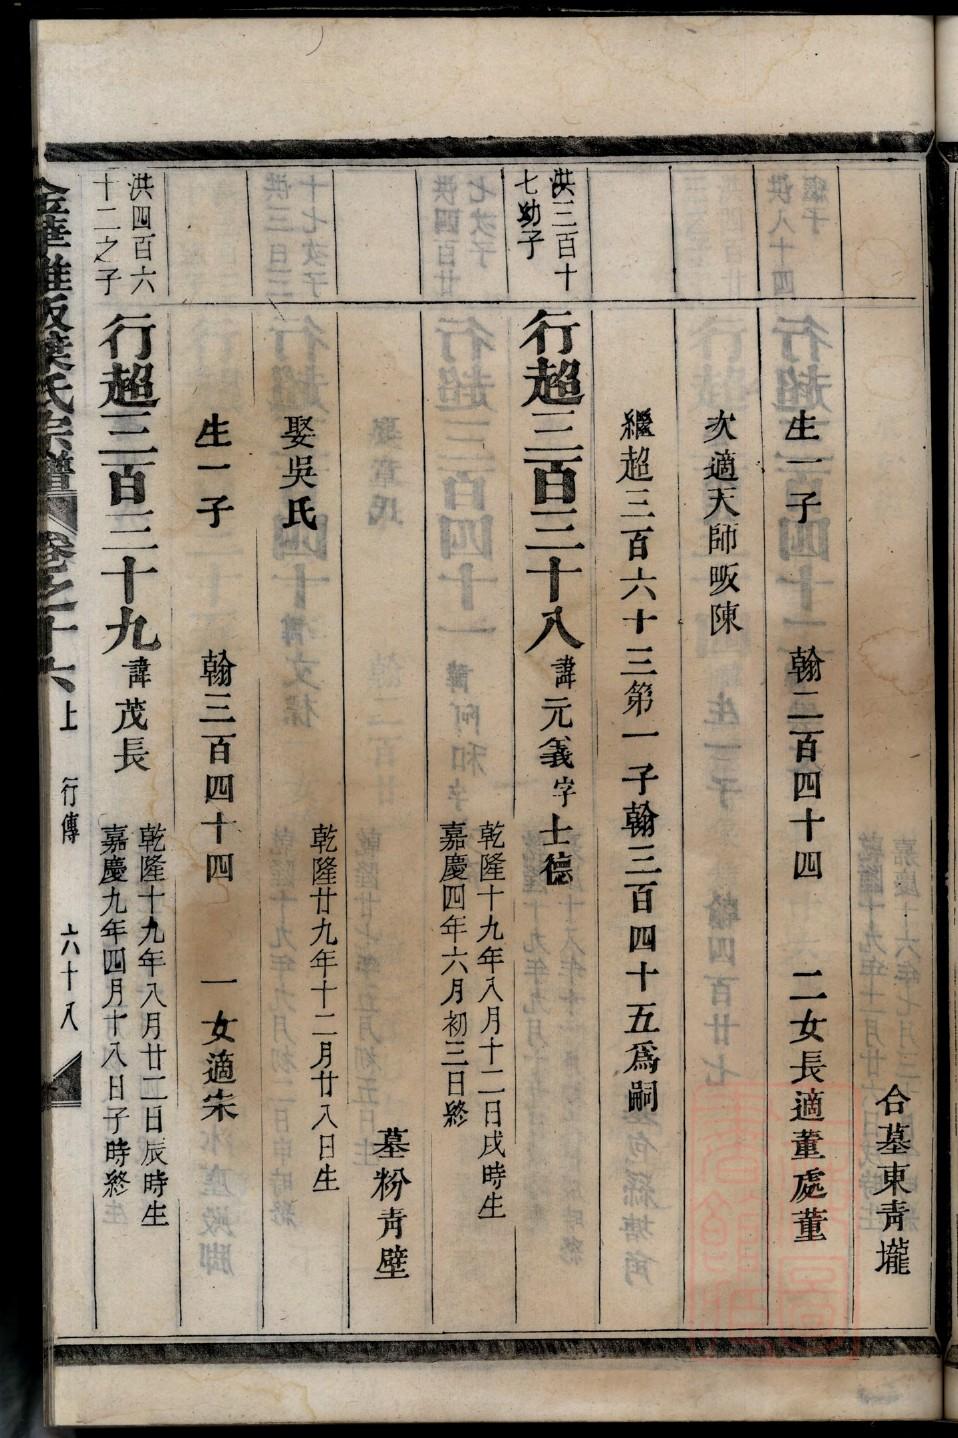 合墓東青壠
生一子　翰二百四十四　二女長適董處董
次適天師畈陳
繼超三百六十三第一子翰三百四十五爲嗣
洪三百十
七幼子
行超三百三十八 諱元義字士德
乾隆十九年八月十二日戌時生
嘉慶四年六月初三日終
墓粉青壁
娶吳氏　乾隆廿九年十二月廿八日生
生一子　翰三百四十四　一女適朱
洪四百六
十二之子
行超三百三十九 諱茂長
乾隆十九年八月廿二日辰時生
嘉慶九年四月十八日子時終
金華雅畈葉氏宗譜 卷之十六上 行傳 六十八